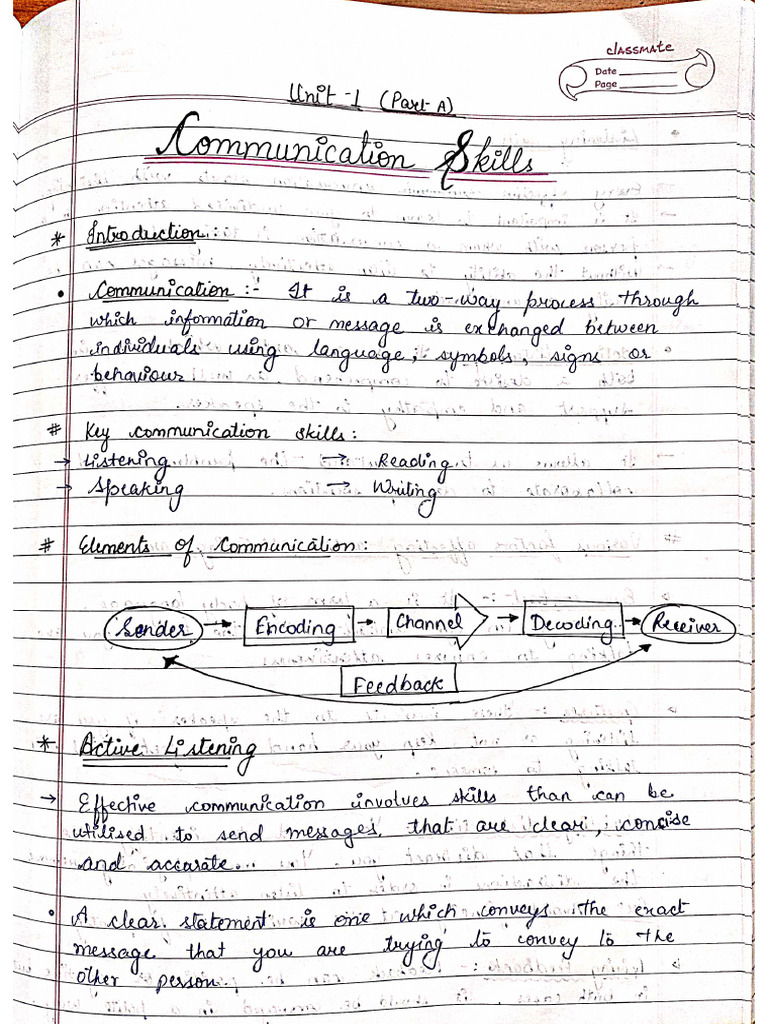 classmate
Date
Page
Unit-1 (Part-A)
Communication Skills
* Introduction:
• Communication :- It is a two-way process through
which information or message is exchanged between
individuals using language, symbols, signs or
behaviour.
# Key communication skills:
→ Listening → Reading
→ Speaking → Writing
# Elements of Communication:
Sender → Encoding → Channel → Decoding → Receiver
Feedback
* Active Listening
→ Effective communication involves skills than can be
utilised to send messages that are clear, concise
and accurate...
• A clear statement is one which conveys the exact
message that you are trying to convey to the
other person.